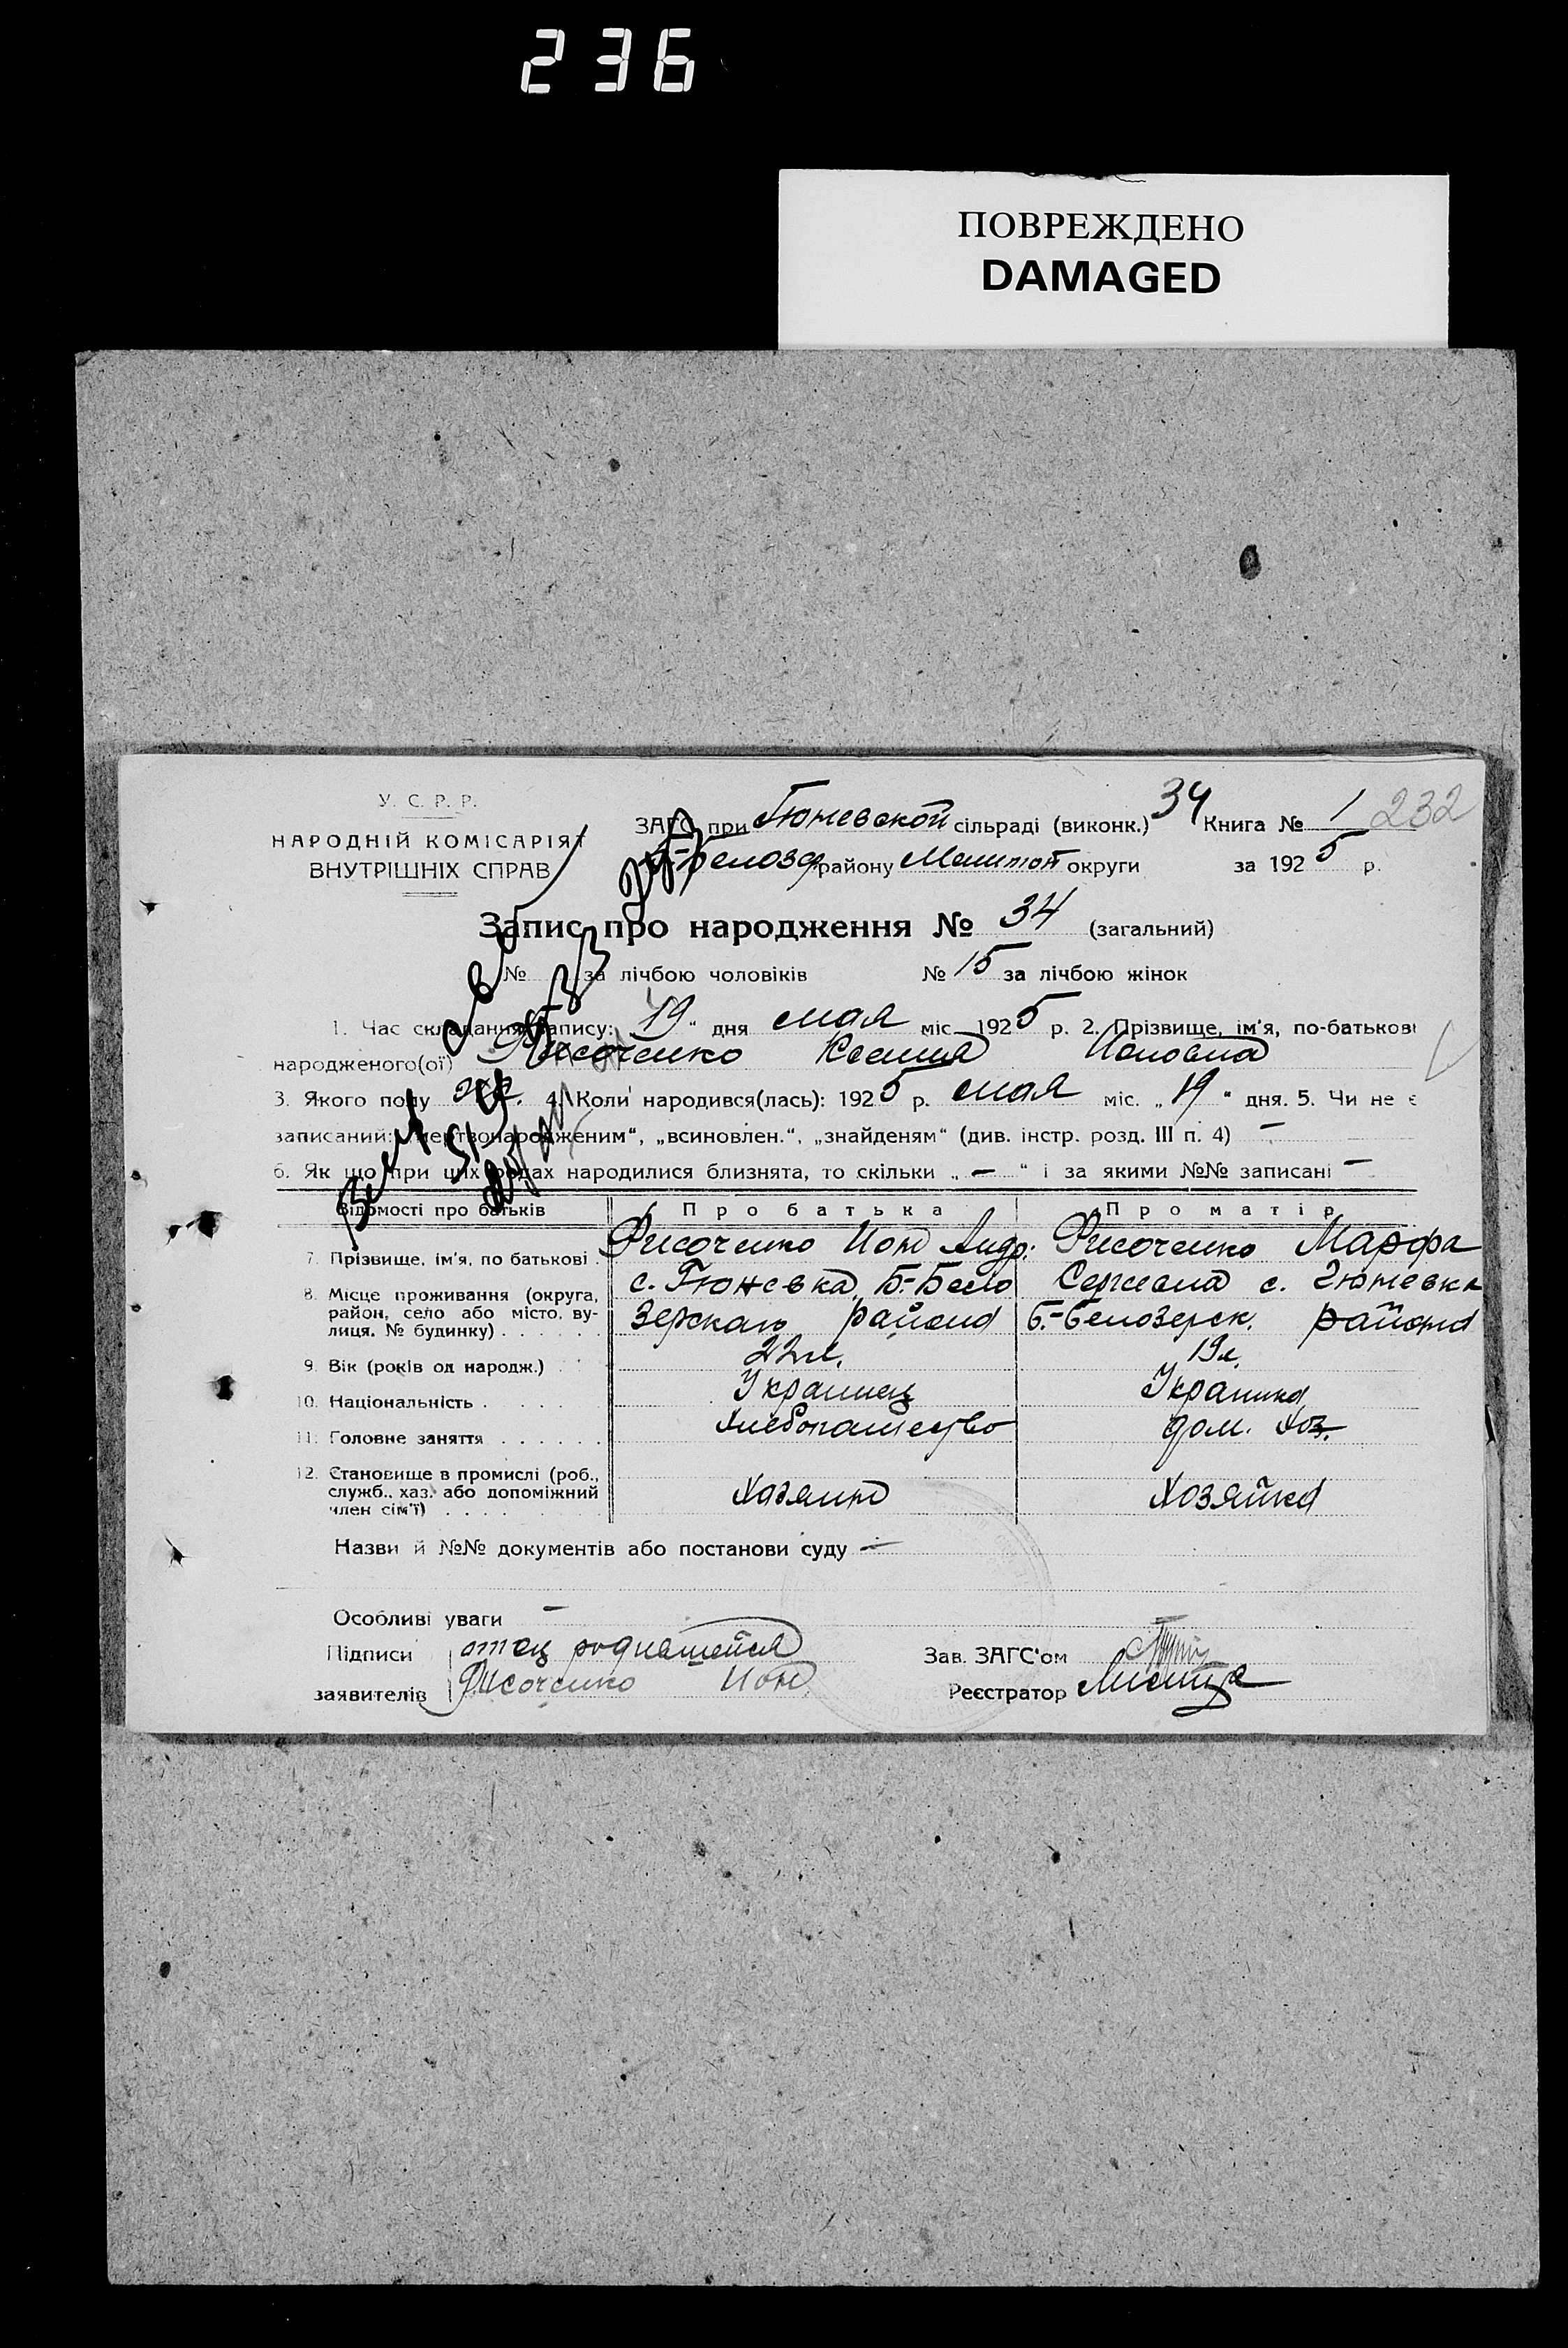 236
ПОВРЕЖДЕНО
DAMAGED
У. С. Р. Р.
НАРОДНІЙ КОМІСАРІЯТ
ВНУТРІШНІХ СПРАВ
ЗАГС при Гюневской сільраді (виконк.) 34 Книга № 1 232
Б-Белозер. району Мелитоп округи за 1925 р.
Запис про народження № 34 (загальний)
№ за лічбою чоловіків № 15 за лічбою жінок
1. Час складання запису: „19“ дня мая міс. 1925 р. 2. Прізвище, ім'я, по-батькові
народженого(ої) Фисоченко Ксения Ионовна
3. Якого полу жен. 4. Коли народився(лась): 1925 р. мая міс. „19“ дня. 5. Чи не є
записаний: „мертвонародженим“, „всиновлен.“, „знайденям“ (див. інстр. розд. III п. 4) —
6. Як що при цих родах народилися близнята, то скільки „—“ і за якими №№ записані —
Відомості про батьків Про батька Про матір
7. Прізвище, ім'я, по батькові . Фисоченко Ион Андр: Фисоченко Марфа
8. Місце проживання (округа, район, село або місто, вулиця, № будинку) с. Гюневка, Б.-Бело Сергеевна с. Гюневка
зерского района Б.-Белозерск. района
9. Вік (років од народж.) 22 л. 19 л.
10. Національність Украинец Украинка
11. Головне заняття Хлебопашество дом. хоз.
12. Становище в промислі (роб., служб., хаз. або допоміжний член сім'ї) Хозяин Хозяйка
Назви й №№ документів або постанови суду —
Особливі уваги —
Підписи отец родившейся Зав. ЗАГС'ом
заявителів Фисоченко Ион Реєстратор